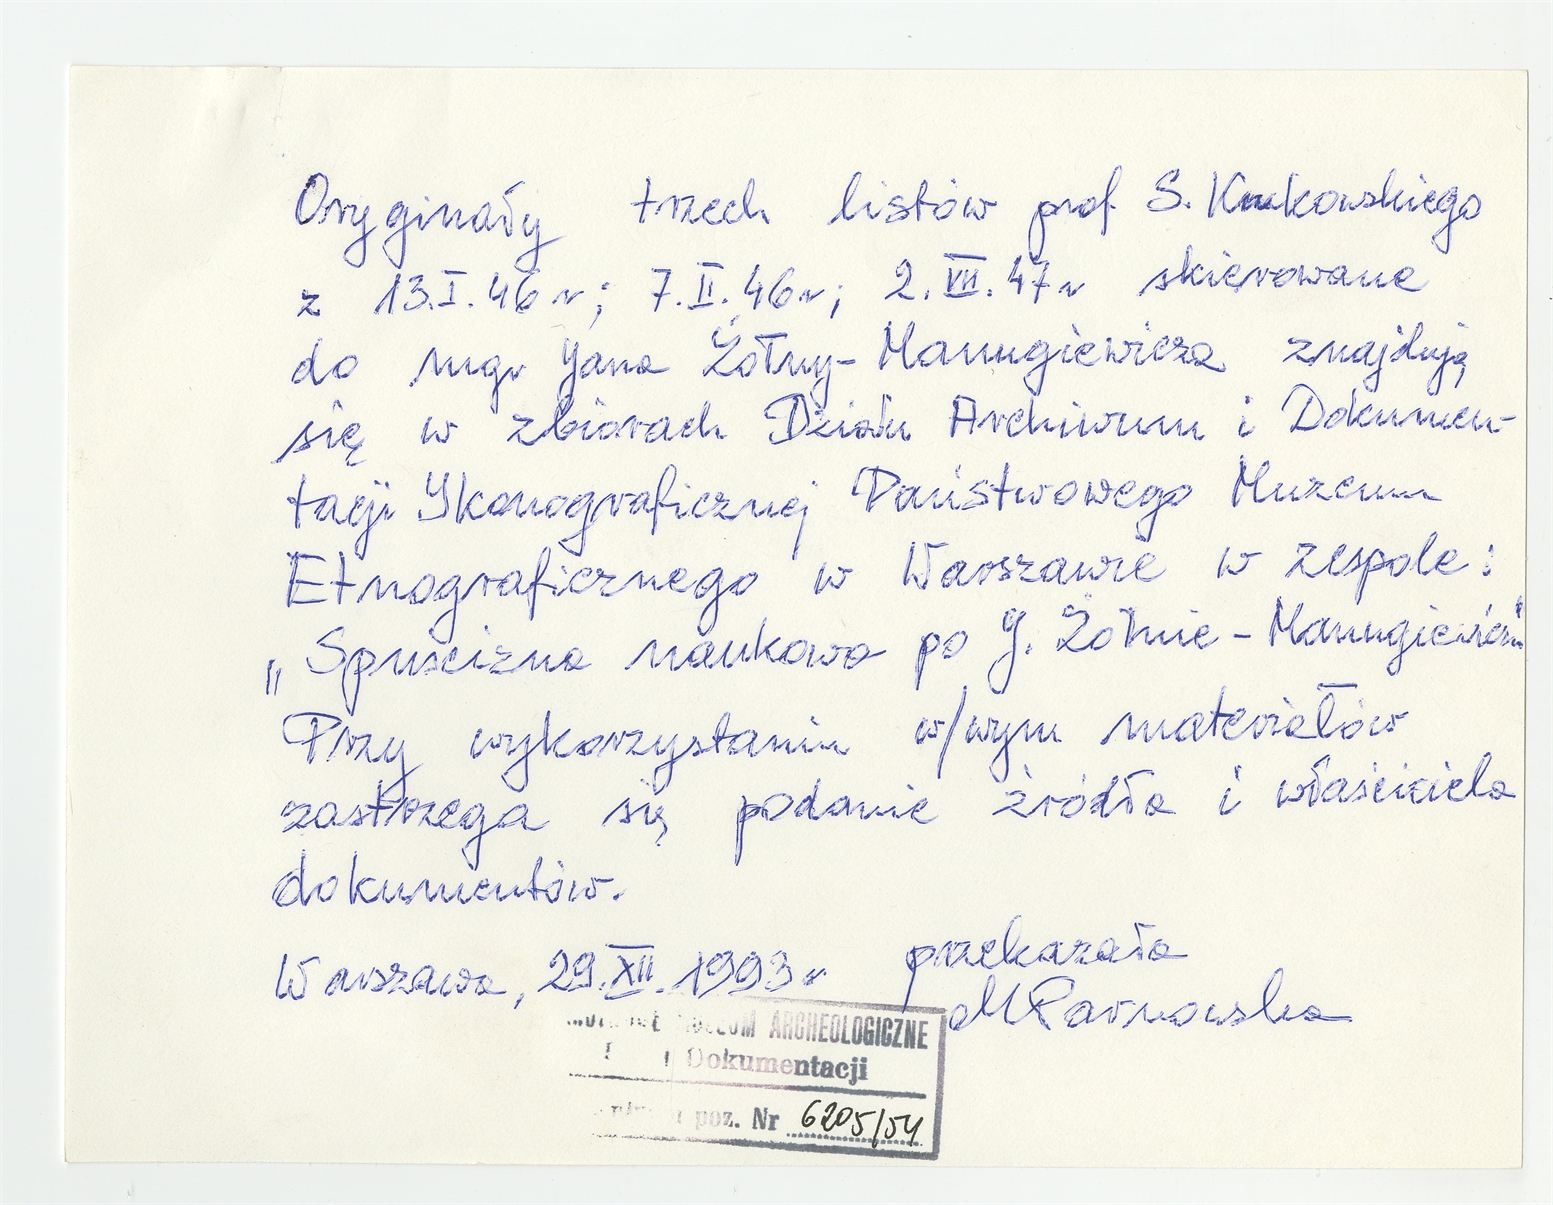 Oryginały trzech listów prof S. Krukowskiego
z 13.I.46 r; 7.II.46 r; 2.VII.47 r skierowane
do mgr Jana Żółny-Manugiewicza znajdują
się w zbiorach Działu Archiwum i Dokumen-
tacji Ikonograficznej Państwowego Muzeum
Etnograficznego w Warszawie w zespole:
„Spuścizna naukowa po J. Żółnie-Manugiewiczu"
Przy wykorzystaniu w/wym materiałów
zastrzega się podanie żródła i właściciela
dokumentów.
Warszawa, 29.XII.1993 r przekazała
MParnowska
MUZEUM ARCHEOLOGICZNE
Dokumentacji
poz. Nr 6205/54